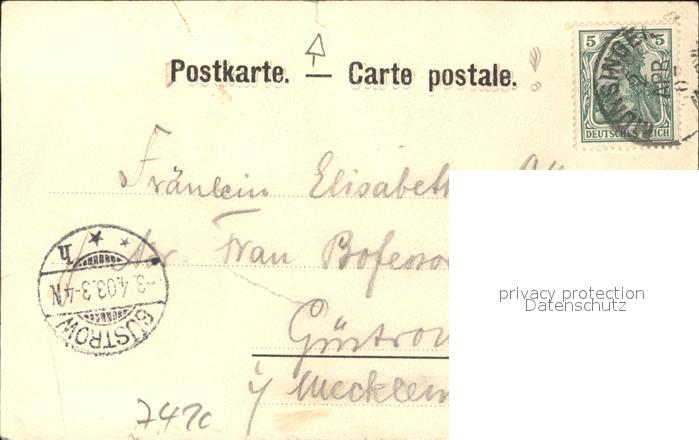 Postkarte. — Carte postale.
5 5
DEUTSCHES REICH
MÜNSINGEN
2 APR 03
Fräulein Elisabeth
Adr. Frau
Güstrow
i/ Mecklen
GÜSTROW
-3.4.03.3-4N.
h
privacy protection
Datenschutz
747c